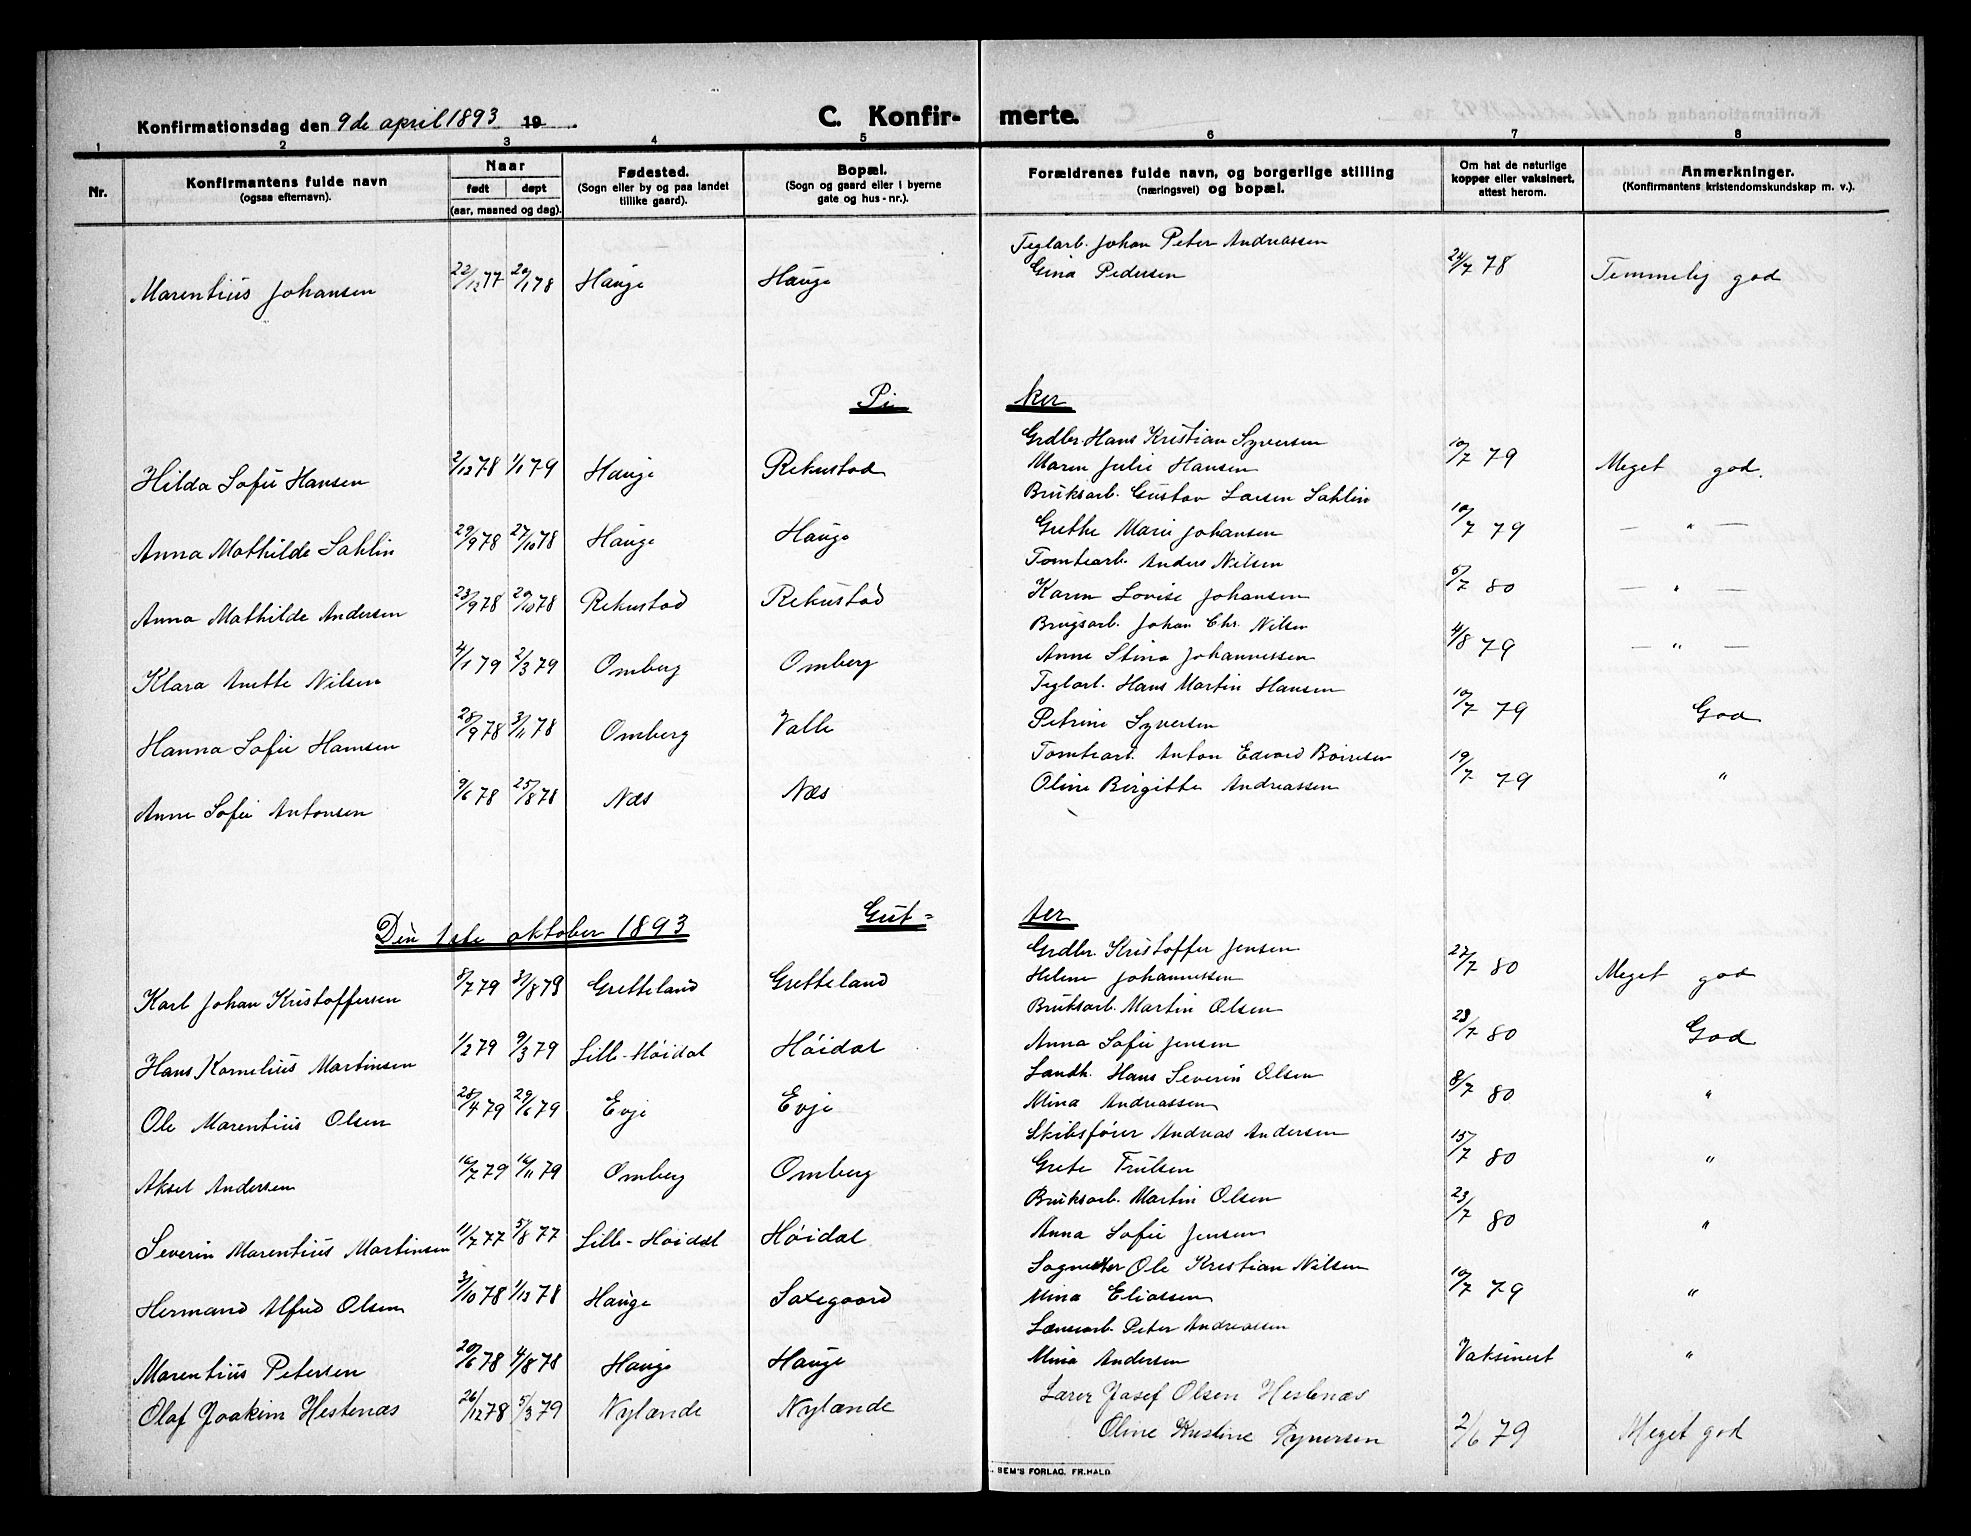 Konfirmationsdag den 9de april 1893 19
C. Konfir- merte.
1 2 3 4 5 6 7 8
Nr.
Konfirmantens fulde navn (ogsaa efternavn).
Naar født døpt (aar, maaned og dag).
Fødested. (Sogn eller by og paa landet tillike gaard).
Bopæl. (Sogn og gaard eller i byerne gate og hus-nr.).
Forældrenes fulde navn, og borgerlige stilling (næringsvei) og bopæl.
Om hat de naturlige kopper eller vaksinert, attest herom.
Anmerkninger. (Konfirmantens kristendomskundskap m. v.).
Teglarb. Johan Peter Andreassen
Marentius Johansen 22/12 77 20/1 78 Hauge Hauge Gina Pedersen 24/7 78 Temmelig god
Pi ker
Grdbr. Hans Kristian Syversen
Hilda Sofie Hansen 2/12 78 1/1 79 Hauge Rekustad Maren Julie Hansen 10/7 79 Meget god.
Bruksarb. Gustav Larsen Sahlin
Anna Mathilde Sahlin 29/9 78 27/10 78 Hauge Hauge Grethe Marie Johansen 10/7 79 — " —
Tomtearb. Anders Nilsen
Anna Mathilde Andersen 23/9 78 20/10 78 Rekustad Rekustad Karen Lovise Johansen 5/7 80 — " —
Brugsarb. Johan Chr. Nilsen
Klara Anette Nilsen 4/1 79 2/3 79 Omberg Omberg Anne Stina Johannessen 4/8 79 — " —
Teglarb. Hans Martin Hansen
Hanna Sofie Hansen 28/9 78 3/11 78 Omberg Valle Petrine Syversen 10/7 79 God
Tomtearb. Anton Edvard Børresen
Anne Sofie Antonsen 9/6 78 25/8 78 Næs Næs Oline Birgitte Andreassen 19/7 79 "
Den 1ste oktober 1893 Gut- ter
Grdbr. Kristoffer Jensen
Karl Johan Kristoffersen 8/7 79 31/8 79 Gretteland Gretteland Helene Johannessen 27/7 80 Meget god
Bruksarb. Martin Olsen
Hans Kornelius Martinsen 1/2 79 9/3 79 Lille-Høidal Høidal Anna Sofie Jensen 23/7 80 God
Landh. Hans Severin Olsen
Ole Marentius Olsen 28/4 79 29/6 79 Evje Evje Mina Andreassen 8/7 80 "
Skibsfører Andreas Andersen
Aksel Andersen 10/7 79 16/11 79 Omberg Omberg Grete Trulsen 15/7 80 "
Bruksarb. Martin Olsen
Severin Marentius Martinsen 11/7 77 5/8 77 Lille-Høidal Høidal Anna Sofie Jensen 23/7 80 "
Ole Kristian Nilsen
Hermand Alfred Olsen 3/10 78 1/12 78 Hauge Saxegaard Mina Eliassen 10/7 79 "
Peter Andreassen
Marentius Petersen 20/6 78 4/8 78 Hauge Hauge Mina Andersen Vaksinert "
Lærer Josef Olsen Hestenæs
Olaf Joakim Hestenæs 26/12 78 5/3 79 Nylande Nylande Oline Kristine Syversen 2/6 79 Meget god
SEM'S FORLAG, FR.HALD